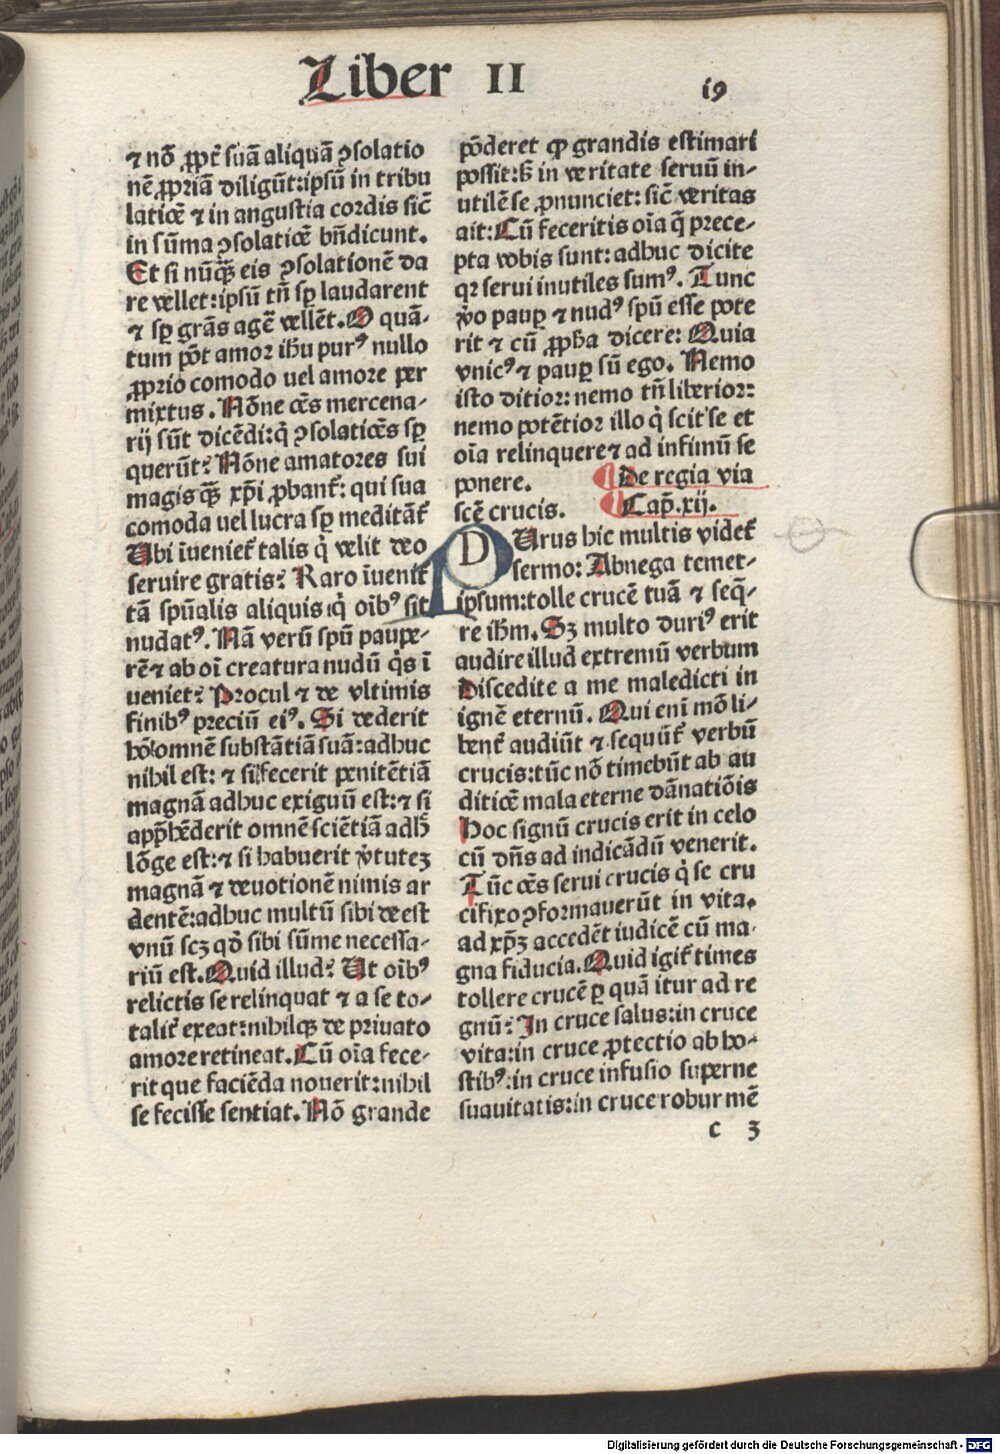 Liber II
i9
⁊ nō ꝓpt̄ suā aliquā ꝯsolatio
nē ꝓpriā diligūt:ipsū in tribu
latiōe ⁊ in angustia cordis sic̄
in sūma ꝯsolatiōe bn̄dicunt.
Et si nūqꝫ̄ eis ꝯsolationē da
re vellet:ipsū tn̄ sꝑ laudarent
⁊ sꝑ grās agē vellēt.O quā-
tum pōt amor ih̄u purꝰ nullo
ꝓprio comodo uel amore per
mixtus. Nōne oēs mercena-
rij sūt dicēdi:q̄ ꝯsolatiōes sꝑ
querūt? Nōne amatores sui
magis qꝫ̄ xp̄i ꝓbant̄: qui sua
comoda uel lucra sꝑ meditāt̄
Ubi īueniet̄ talis q̇ velit deo
seruire gratis? Raro īuenit̄
tā spūalis aliquis q̇ oībꝰ sit
nudatꝰ. Nā verū spū paupe-
rē ⁊ ab oī creatura nudū q̇s ī
ueniet? Procul ⁊ de vltimis
finibꝰ preciū eiꝰ. Si dederit
hō omnē substātiā suā:adhuc
nihil est: ⁊ si fecerit penitētiā
magnā adhuc exiguū est:⁊ si
app̄hēderit omnē sciētiā adh̄
lōge est:⁊ si habuerit v̇tuteꝫ
magnā ⁊ deuotionē nimis ar
dentē:adhuc multū sibi deest
vnū scꝫ qd̄ sibi sūme necessa-
riū est.Quid illud? Ut oībꝰ
relictis se relinquat ⁊ a se to-
talit̄ exeat:nihilqꝫ de priuato
amore retineat.Cū oīa fece-
rit que faciēda nouerit:nihil
se fecisse sentiat. Nō grande
pōderet ꝙ grandis estimari
possit:sꝫ in veritate seruū in-
utilē se ꝓnunciet: sic̄ veritas
ait:Cū feceritis oīa q̄ prece-
pta vobis sunt: adhuc dicite
qꝛ serui inutiles sumꝰ. Tunc
v̇o pauꝑ ⁊ nudꝰ spū esse pote
rit ⁊ cū ꝓpha dicere: Quia
vnicꝰ ⁊ pauꝑ sū ego. Nemo
isto ditior: nemo tn̄ liberior:
nemo potētior illo q̇ scit se et
oīa relinquere ⁊ ad infimū se
ponere. De regia via
scē crucis. Cap̄.xij.
DUrus hic multis videt̄
sermo: Abnega temet-
ipsum:tolle crucē tuā ⁊ seq̄-
re ih̄m. Sꝫ multo duriꝰ erit
audire illud extremū verbum
Discedite a me maledicti in
ignē eternū. Qui enī mō li-
bent̄ audiūt ⁊ sequūt̄ verbū
crucis:tūc nō timebūt ab au
ditiōe mala eterne dānatiōis
Hoc signū crucis erit in celo
cū dn̄s ad iudicādū venerit.
Tūc oēs serui crucis q̇ se cru
cifixo ꝯformauerūt in vita.
ad xp̄ꝫ accedēt iudicē cū ma-
gna fiducia.Quid igit̄ times
tollere crucē ꝑ quā itur ad re
gnū? In cruce salus:in cruce
vita:in cruce ꝓtectio ab ho-
stibꝰ:in cruce infusio superne
suauitatis:in cruce robur mē
c 3
Digitalisierung gefördert durch die Deutsche Forschungsgemeinschaft - DFG